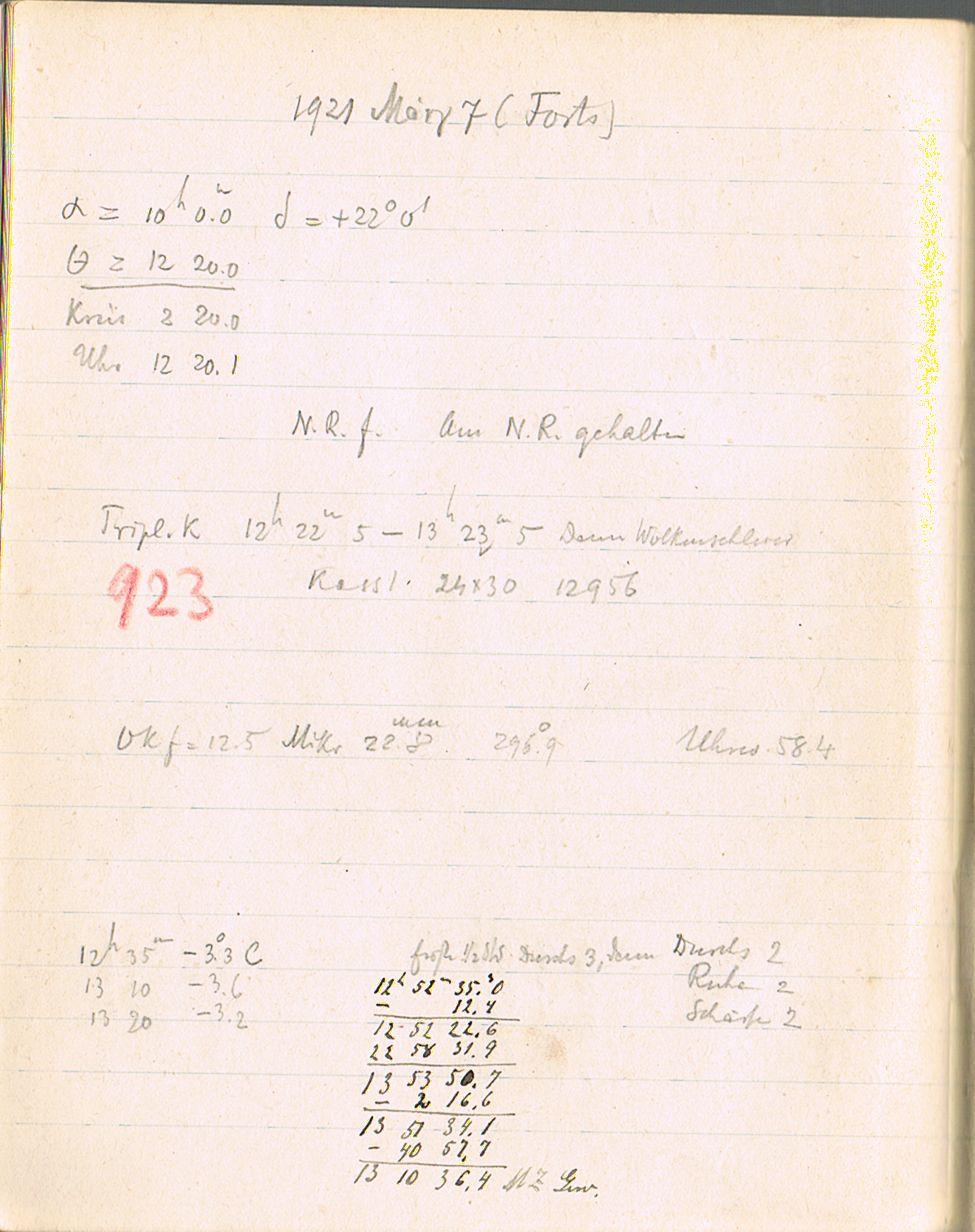 1921 März 7 (Forts)
α = 10ʰ 0.ᵐ0 δ = +22° 0'
θ = 12 20.0
Kreis 2 20.0
Uhr 12 20.1
N.R. f. Am N.R. gehalten
Tripl. K 12ʰ 22ᵐ 5 – 13ʰ 23ᵐ 5 Dann Wolkenschleier
923
Kass I. 24x30 12956
OK f = 12.5 Mikr 22.8 mm 296.°9 Uhrw. 58.4
12ʰ 35ᵐ -3.°3 C erste 1/2 Std. Durchs 3, dann Durchs 2
13 10 -3.6 12ʰ 52ᵐ 35.ˢ0 Ruhe 2
13 20 -3.2 – 12.4 Schärfe 2
12 52 22.6
22 58 31.9
13 53 50.7
– 2 16.6
13 51 34.1
– 40 57.7
13 10 36.4 MZ Grw.